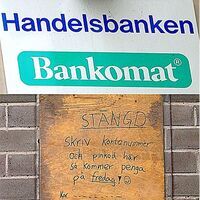 Handelsbanken
Bankomat®
STÄNGD
SKRIV kontonummer
och pinkod här
så kommer penga
på fredag!